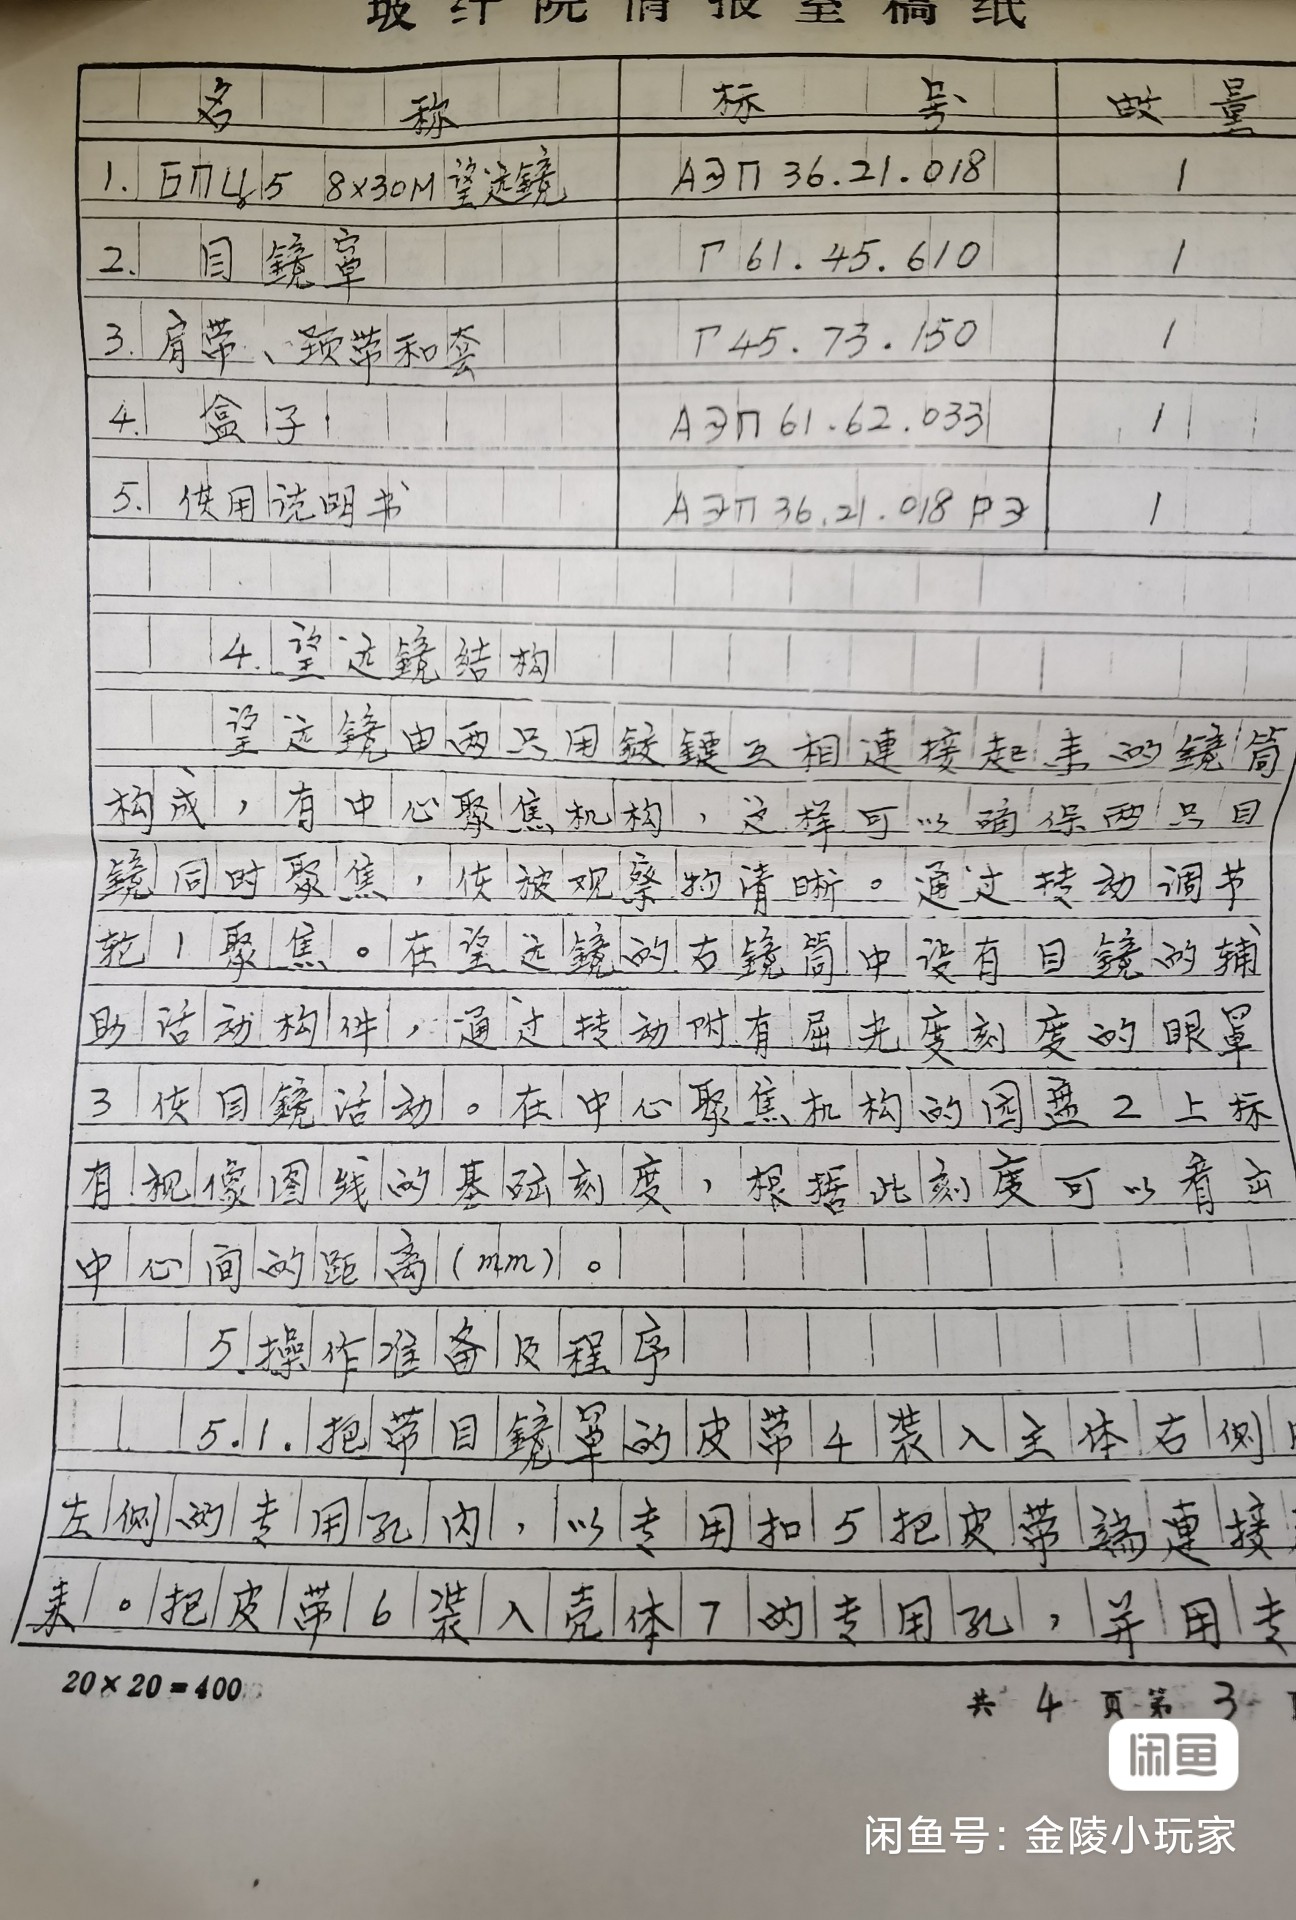 玻纤院情报室稿纸
名称 标号 数量
1. БПЦ5 8×30М望远镜 АЭП 36.21.018 1
2. 目镜罩 Г 61.45.610 1
3. 肩带、颈带和套 Г 45.73.150 1
4. 盒子 АЭП 61.62.033 1
5. 使用说明书 АЭП 36.21.018 РЭ 1
4. 望远镜结构
望远镜由两只用铰鏈互相連接起来的镜筒
构成，有中心聚焦机构，这样可以确保两只目
镜同时聚焦，使被观察物清晰。通过转动调节
轮1聚焦。在望远镜的右镜筒中设有目镜的辅
助活动构件，通过转动附有屈光度刻度的眼罩
3使目镜活动。在中心聚焦机构的园盘2上标
有视像图线的基础刻度，根据此刻度可以看出
中心间的距离(mm)。
5.操作准备及程序
5.1.把带目镜罩的皮带4装入主体右侧
左侧的专用孔内，以专用扣5把皮带端連接
来。把皮带6装入壳体7的专用孔，并用专
20×20=400
共4页第3
闲鱼
闲鱼号：金陵小玩家